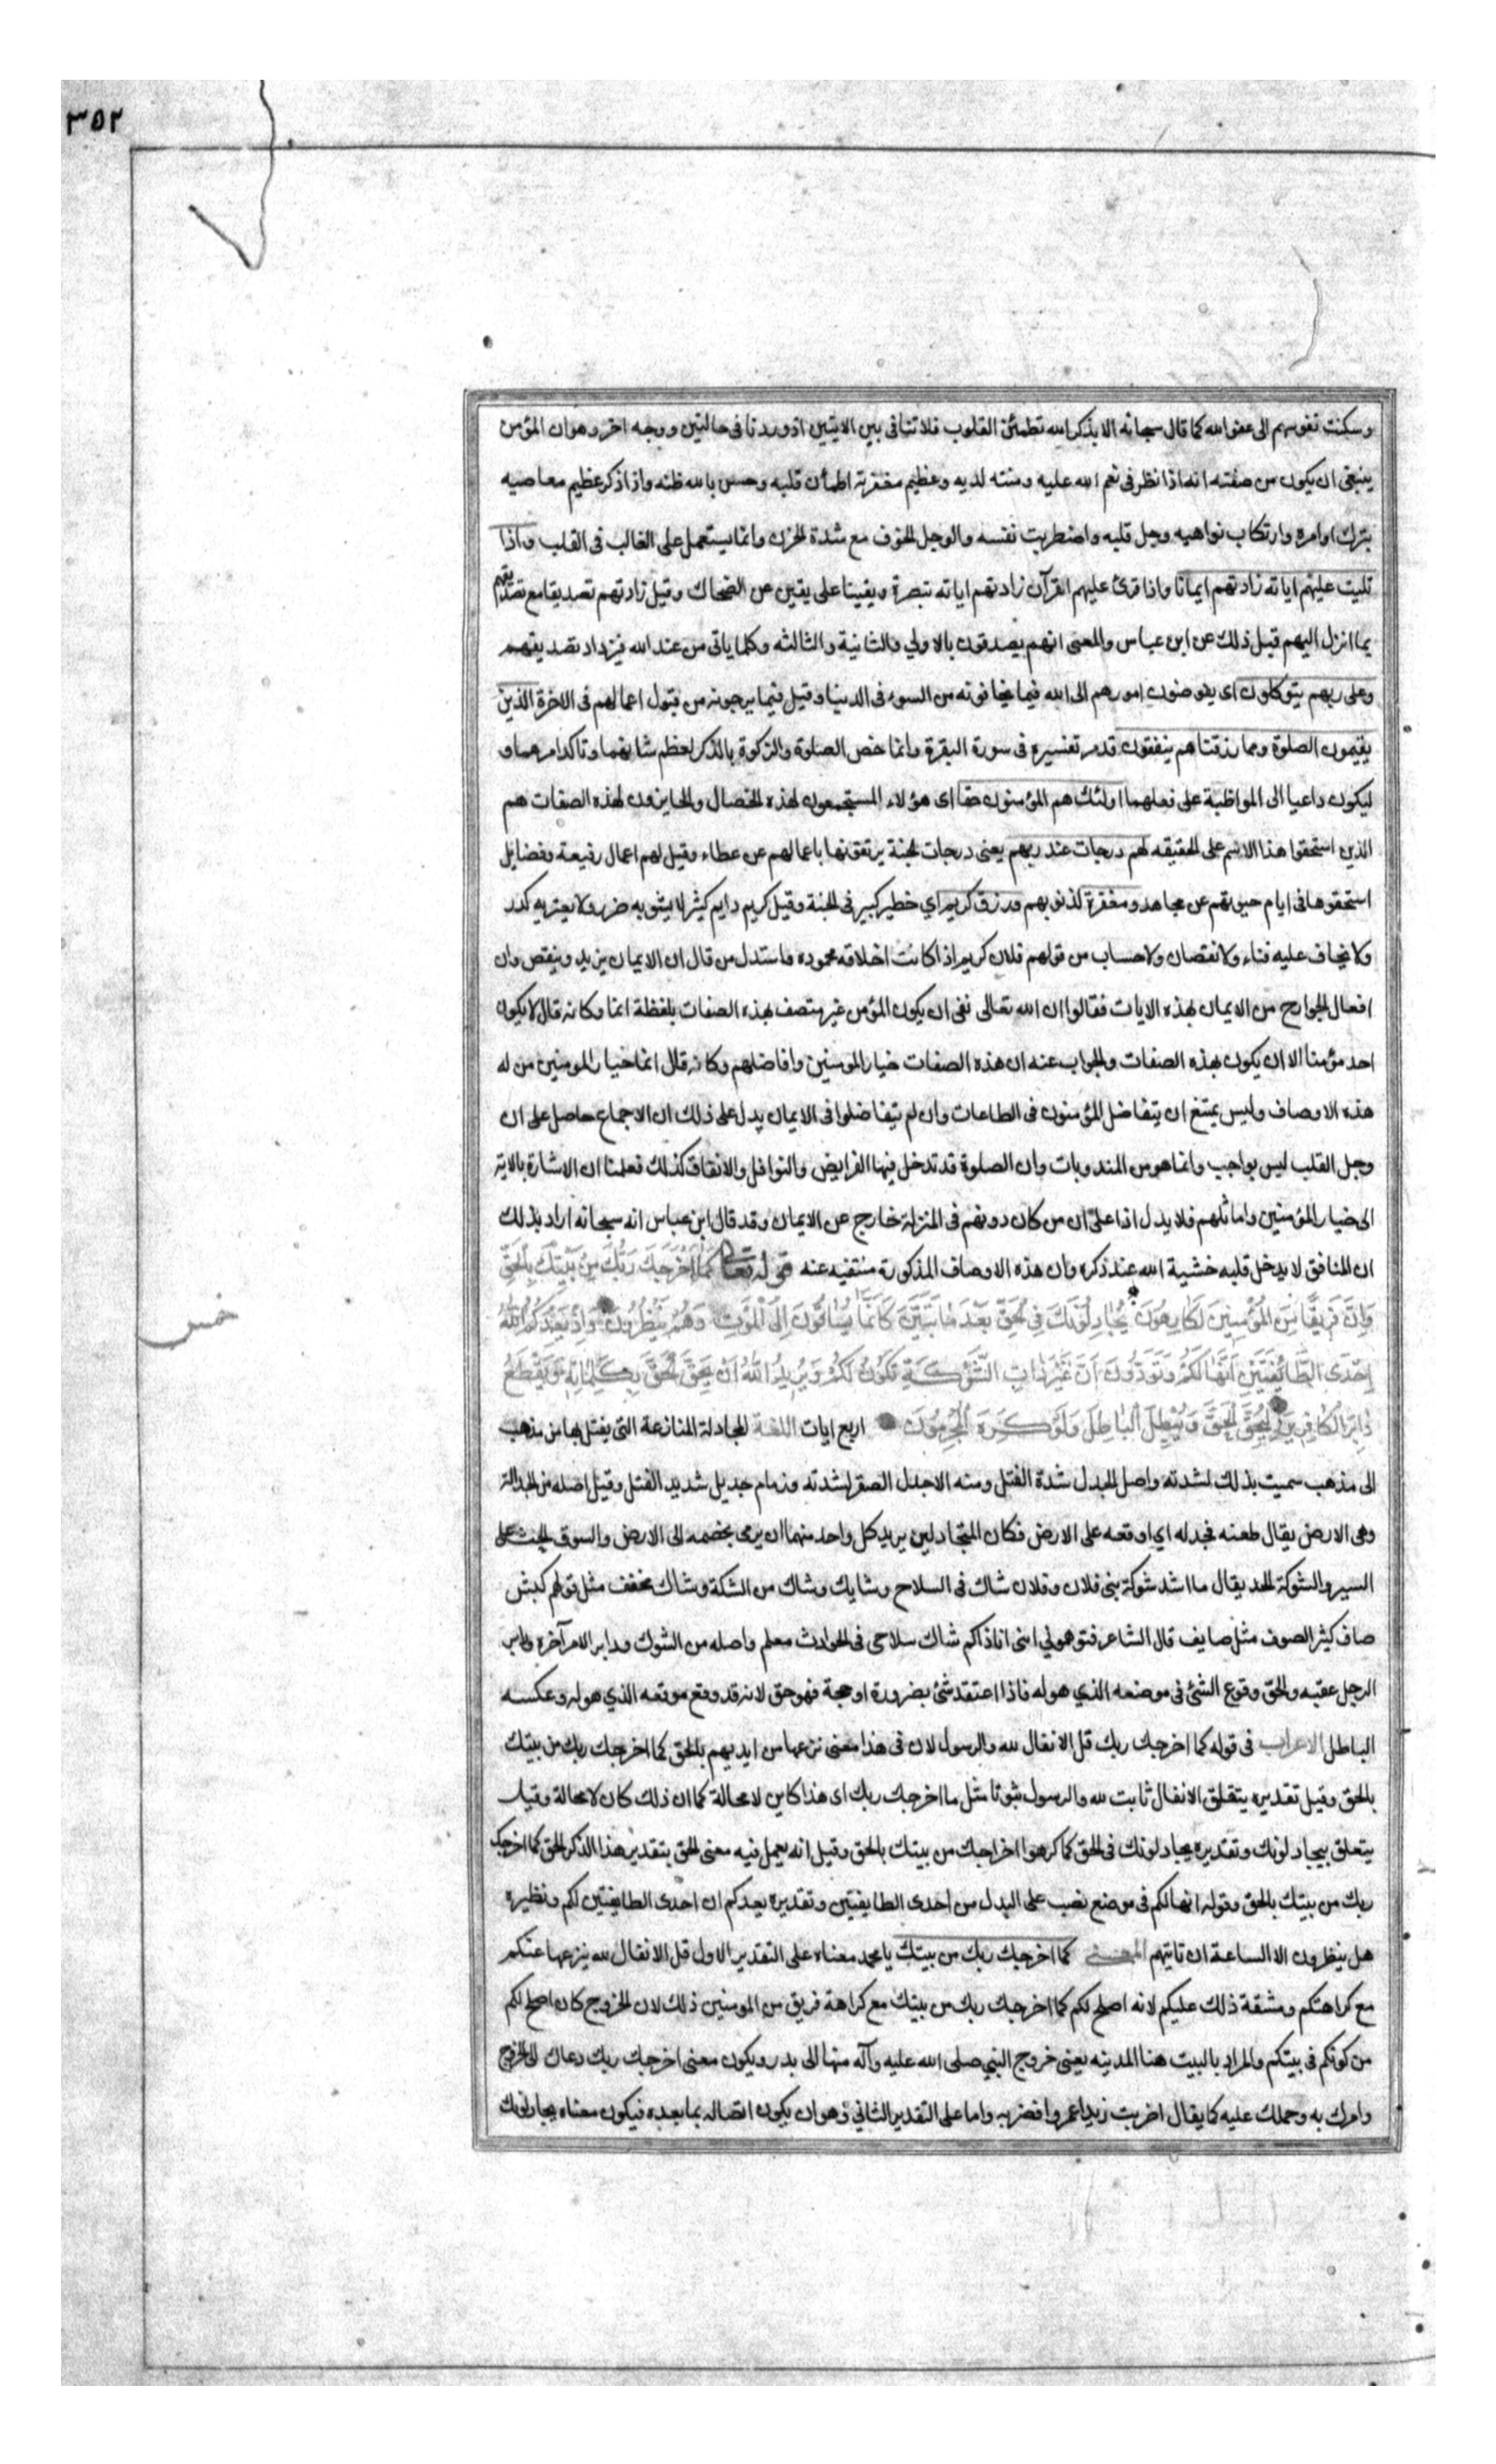 ٣٥٢
وسكنت نفوسهم الى عفو الله كما قال سبحانه الا بذكر الله تطمئن القلوب فلا تنافى بين الايتين اذ وردتا فى حالتين ووجه اخر وهو ان المؤمن
ينبغى ان يكون من صفته انه اذا نظر فى نعم الله عليه ومنته لديه وعظيم مغفرته اطمأن قلبه وحسن بالله ظنه واذا ذكر عظيم معاصيه
بترك اوامره وارتكاب نواهيه وجل قلبه واضطربت نفسه والوجل الخوف مع شدة الحزن وانما يستعمل على الغالب فى القلب واذا
تليت عليهم اياته زادتهم ايمانا واذا قرئ عليهم القرآن زادتهم اياته تبصرة ويقينا على يقين عن الضحاك وقيل زادتهم تصديقا مع تصديقهم
بما انزل اليهم قبل ذلك عن ابن عباس والمعنى انهم يصدقون بالاولي والثانية والثالثه وكلما ياتى من عند الله فيزداد تصديقهم
وعلى ربهم يتوكلون اى يفوضون امورهم الى الله فيما يخافونه من السوء فى الدنيا وقيل فيما يرجونه من قبول اعمالهم فى الاخرة الذين
يقيمون الصلوة ومما رزقناهم ينفقون قد مر تفسيره فى سورة البقرة وانما خص الصلوة والزكوة بالذكر لعظم شانهما وتاكد امرهما و
ليكون داعيا الى المواظبة على فعلهما اولئك هم المؤمنون حقا اى هؤلاء المستجمعون لهذه الخصال والحايزون لهذه الصفات هم
الذين استحقوا هذا الاسم على الحقيقه لهم درجات عند ربهم يعنى درجات الجنة يرتقونها باعمالهم عن عطاء وقيل لهم اعمال رفيعة وفضايل
استحقوها فى ايام حيوتهم عن مجاهد ومغفرة لذنوبهم ورزق كريم اي خطير كبير فى الجنة وقيل كريم دايم كثير لا يشوبه ضرر ولا يعتريه كدر
ولا يخاف عليه فناء ولا نقصان ولا حساب من قولهم فلان كريم اذا كانت اخلاقه محموده واستدل من قال ان الايمان يزيد وينقص وان
افعال الجوارح من الايمان بهذه الايات فقالوا ان الله تعالى نفى ان يكون المؤمن غير متصف بهذه الصفات بلفظة انما وكانه قال لا يكون
احد مؤمنا الا ان يكون بهذه الصفات والجواب عنه ان هذه الصفات خيار المومنين وافاضلهم وكانه قال انما خيار المومنين من له
هذه الاوصاف وليس يمتنع ان يتفاضل المؤمنون فى الطاعات وان لم يتفاضلوا فى الايمان يدل على ذلك ان الاجماع حاصل على ان
وجل القلب ليس بواجب وانما هو من المندوبات وان الصلوة قد تدخل فيها الفرايض والنوافل والانفاق كذلك فعلمنا ان الاشارة بالاية
الى خيار المؤمنين واماثلهم فلا يدل اذا على ان من كان دونهم فى المنزلة خارج عن الايمان وقد قال ابن عباس انه سبحانه اراد بذلك
ان المنافق لا يدخل قلبه خشية الله عند ذكره وان هذه الاوصاف المذكورة منتفيه عنه قوله تعالى كَمَا أَخْرَجَكَ رَبُّكَ مِنْ بَيْتِكَ بِالْحَقِّ
وَإِنَّ فَرِيقًا مِنَ الْمُؤْمِنِينَ لَكَارِهُونَ يُجَادِلُونَكَ فِى الْحَقِّ بَعْدَ مَا تَبَيَّنَ كَأَنَّمَا يُسَاقُونَ إِلَى الْمَوْتِ وَهُمْ يَنْظُرُونَ وَإِذْ يَعِدُكُمُ اللهُ
إِحْدَى الطَّائِفَتَيْنِ أَنَّهَا لَكُمْ وَتَوَدُّونَ أَنَّ غَيْرَ ذَاتِ الشَّوْكَةِ تَكُونُ لَكُمْ وَيُرِيدُ اللهُ أَنْ يُحِقَّ الْحَقَّ بِكَلِمَاتِهِ وَيَقْطَعَ
دَابِرَ الْكَافِرِينَ لِيُحِقَّ الْحَقَّ وَيُبْطِلَ الْبَاطِلَ وَلَوْ كَرِهَ الْمُجْرِمُونَ اربع ايات اللغة المجادلة المنازعة التى يفتل بها من مذهب
الى مذهب سميت بذلك لشدته واصل الجدل شدة الفتل ومنه الاجدل الصقر لشدته وزمام جديل شديد الفتل وقيل اصله من الجدالة
وهى الارض يقال طعنه فجدله اي اوقعه على الارض فكان المتجادلين يريد كل واحد منهما ان يرمى بخصمه الى الارض والسوق الحث على
السير والشوكة الحد يقال ما اشد شوكة بنى فلان وفلان شاك فى السلاح وشايك وشاك من الشكة وشاك مخفف مثل قولهم كبش
صاف كثير الصوف مثل صايف قال الشاعر فتوهمونى اننى انا ذاكم شاك سلاحى فى الحوادث معلم واصله من الشوك ودابر الامر آخره ودابر
الرجل عقبه والحق وقوع الشئ فى موضعه الذي هو له فاذا اعتقد شئ بضرورة او حجة فهو حق لانه قد وقع موقعه الذي هو له وعكسه
الباطل الاعراب فى قوله كما اخرجك ربك قل الانفال لله والرسول لان فى هذا معنى نزعها من ايديهم بالحق كما اخرجك ربك من بيتك
بالحق وقيل تقديره يتعلق الانفال ثابت لله والرسول ثبوتا مثل ما اخرجك ربك اى هذا كاين لا محالة كما ان ذلك كان لا محالة وقيل
يتعلق بيجادلونك وتقديره يجادلونك فى الحق كما كرهوا اخراجك من بيتك بالحق وقيل انه يعمل فيه معنى الحق بتقدير هذا الذكر الحق كما اخرجك
ربك من بيتك بالحق وقوله انها لكم فى موضع نصب على البدل من احدى الطايفتين وتقديره يعدكم ان احدى الطايفتين لكم ونظيره
هل ينظرون الا الساعة ان تاتيهم المعنى كما اخرجك ربك من بيتك يا محمد معناه على التقدير الاول قل الانفال لله ينزعها عنكم
مع كراهتكم ومشقة ذلك عليكم لانه اصلح لكم كما اخرجك ربك من بيتك مع كراهة فريق من المومنين ذلك لان الخروج كان اصلح لكم
من كونكم فى بيتكم والمراد بالبيت هنا المدينه يعنى خروج النبي صلى الله عليه وآله منها الى بدر ويكون معنى اخرجك ربك دعاك الى الخروج
وامرك به وحملك عليه كما يقال اضربت زيدا عمروا فضربه واما على التقدير الثاني وهو ان يكون اتصاله بما بعده فيكون معناه يجادلونك
خمس